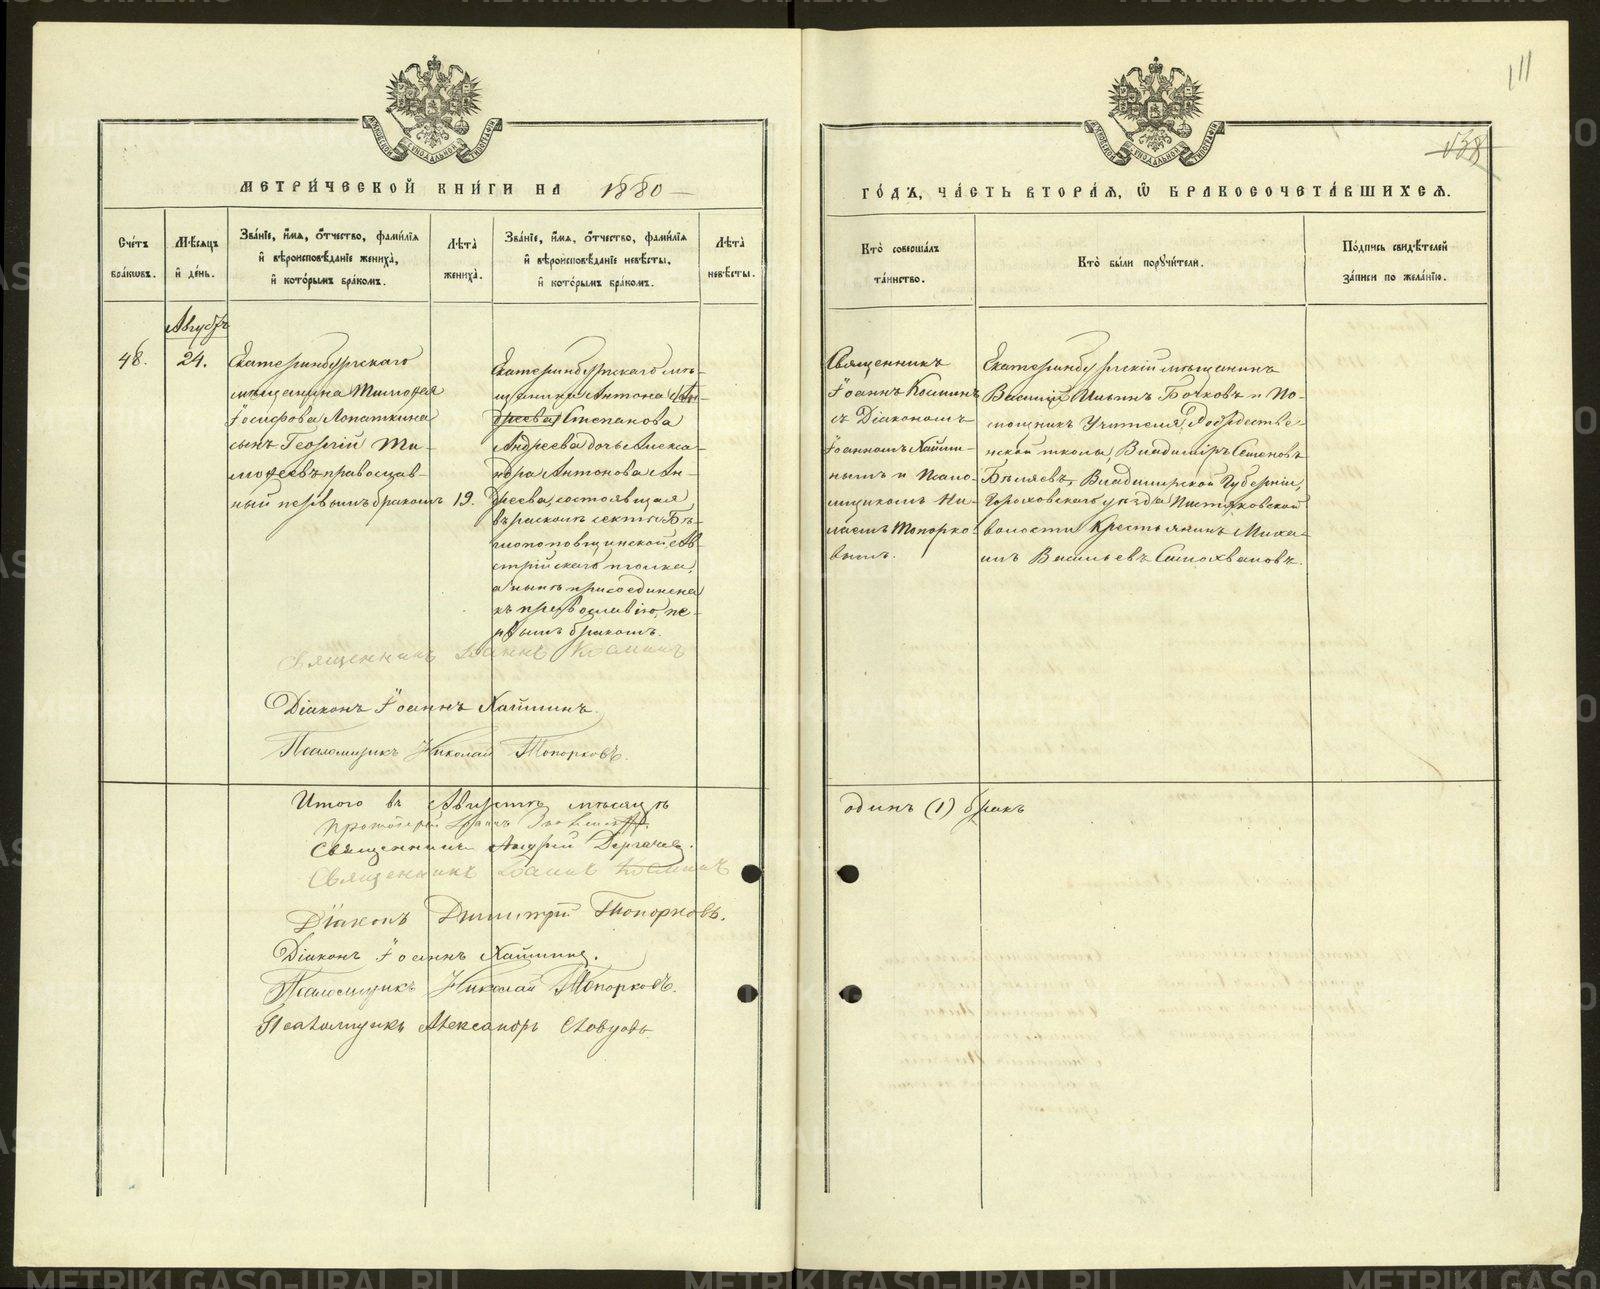 111
138
МОСКОВСКОЙ СѴНОДАЛЬНОЙ ТИПОГРАФІИ
МОСКОВСКОЙ СѴНОДАЛЬНОЙ ТИПОГРАФІИ
МЕТРИ́ЧЕСКОЙ КНИ́ГИ НА 1880
ГО́ДЪ, ЧА́СТЬ ВТОРА́Я, Ѡ БРАКОСОЧЕТА́ВШИХСЯ.
Сче́тъ бра́кѡвъ.
Мѣ́сяцъ и́ де́нь.
Зва́нїе, и́мя, о́тчество, фами́лїя
и́ вѣроисповѣ́данїе жениха̀,
и́ кото́рымъ бра́комъ.
Лѣта̀ жениха̀.
Зва́нїе, и́мя, о́тчество, фами́лїя
и́ вѣроисповѣ́данїе невѣ́сты,
и́ кото́рымъ бра́комъ.
Лѣта̀ невѣ́сты.
Кто̀ соверша́лъ та́инство.
Кто̀ бы́ли поручи́тели.
По́дпись свидѣ́телей за́писи по жела́нїю.
Августъ
48.
24.
Екатеринбургскаго
мѣщанина Тимофея
Іосифова Лопаткина
сынъ Георгій Ти-
мофеевъ православ-
ный первымъ бракомъ
19.
Екатеринбургскаго мѣ-
щанина Антона (Ан-
дреева) Степанова
Андреева дочь Алекса-
ндра Антонова Ан-
дреева, состоявщая
въ расколѣ секты Бѣ-
глопоповщинской Ав-
стрійскаго толка,
а нынѣ присоединена
къ православію, пе-
рвымъ бракомъ.
Священникъ
Іоаннъ Косминъ
съ Діакономъ
Іоанномъ Хайми-
нымъ и Псало-
мщикомъ Ни-
колаемъ Топорко-
вымъ.
Екатеринбургскій мѣщанинъ
Василій Ильинъ Бочковъ и По-
мощникъ Учителя Рождестве-
нской школы, Владиміръ Семеновъ
Бѣляевъ, Владимирской Губерніи,
Гороховскаго уѣзда Пестяковской
волости Крестьянинъ Миха-
илъ Васильевъ Самохваловъ.
Священникъ Іоаннъ Косминъ
Діаконъ Іоаннъ Хайминъ.
Псаломщикъ Николай Топорковъ.
Итого въ Августѣ мѣсяцѣ
одинъ (1) бракъ
Протоіерей Іоаннъ
Священникъ Андрей Дергачев.
Священникъ Іоаннъ Косминъ
Діаконъ Димитрій Топорковъ.
Діаконъ Іоаннъ Хайминъ.
Псаломщикъ Николай Топорковъ.
Псаломщикъ Александръ
METRIKI.GASO-URAL.RU